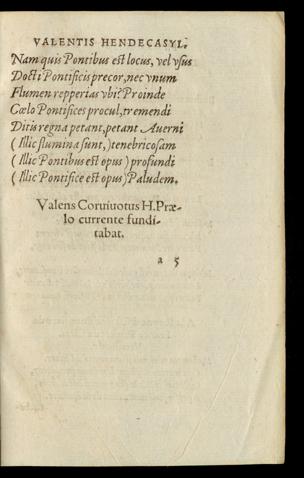 VALENTIS HENDECASYL.
Nam quis Pontibus est locus, vel vsus
Docti Pontificis precor, nec vnum
Flumen repperias vbi? Proinde
Cœlo Pontifices procul, tremendi
Ditis regna petant, petant Auerni
(Illic flumina sunt,) tenebricosam
(Illic Pontibus est opus) profundi
(Illic Pontifice est opus) Paludem.
Valens Coruiuotus H. Præ-
lo currente fundi-
tabat.
a 5